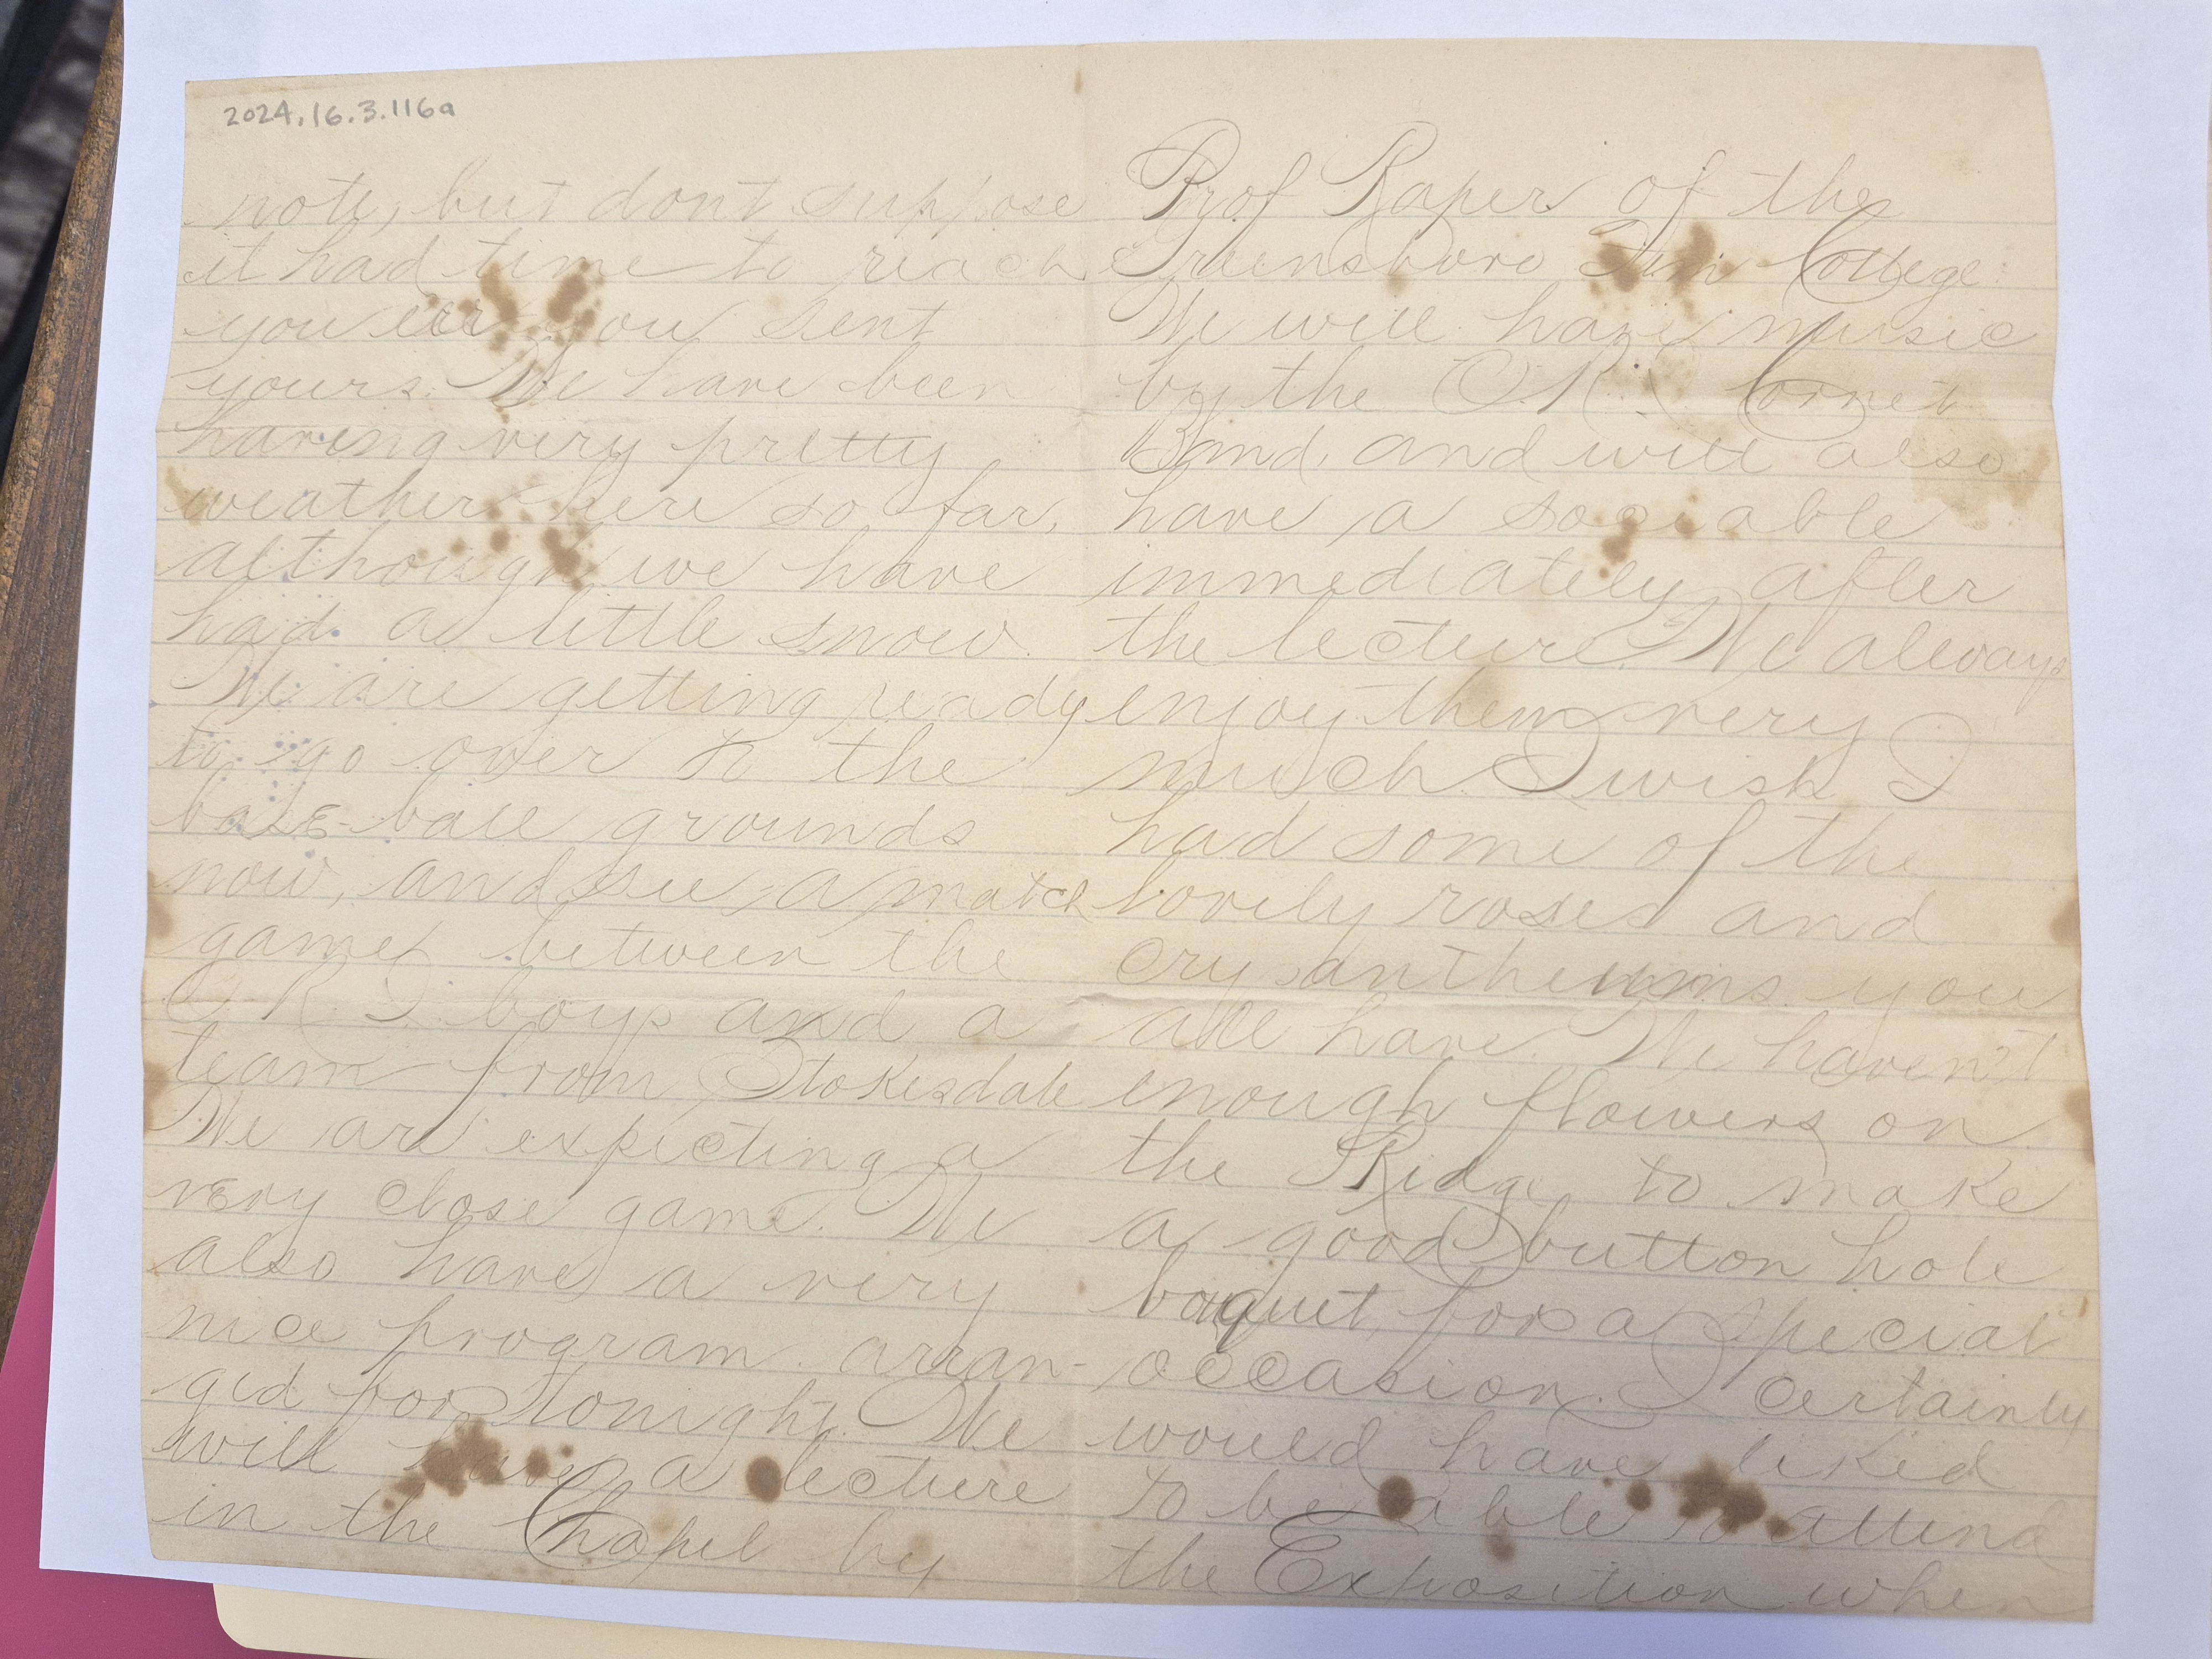 2024.16.3.116a
note, but dont suppose
it had time to reach
you ere you sent
yours. We have been
having very pretty
weather here so far,
although we have
had a little snow.
We are getting ready
to go over to the
base-ball grounds
now, and see a match
game between the
O R I boys and a
team from Stokesdale
We are expecting a
very close game. We
also have a very
nice program arran-
ged for tonight. We
will have a lecture
in the Chapel by
Prof Raper of the
Greensboro Fem College
We will have music
by the O.R. Cornet
Band, and will also
have a sociable
immediately after
the lecture. We always
enjoy them very
much. I wish I
had some of the
lovely roses and
crysanthemums you
all have. We haven't
enough flowers on
the Ridge to make
a good button hole
boquet, for a special
occasion. I certainly
would have liked
to be able to attend
the Exposition when